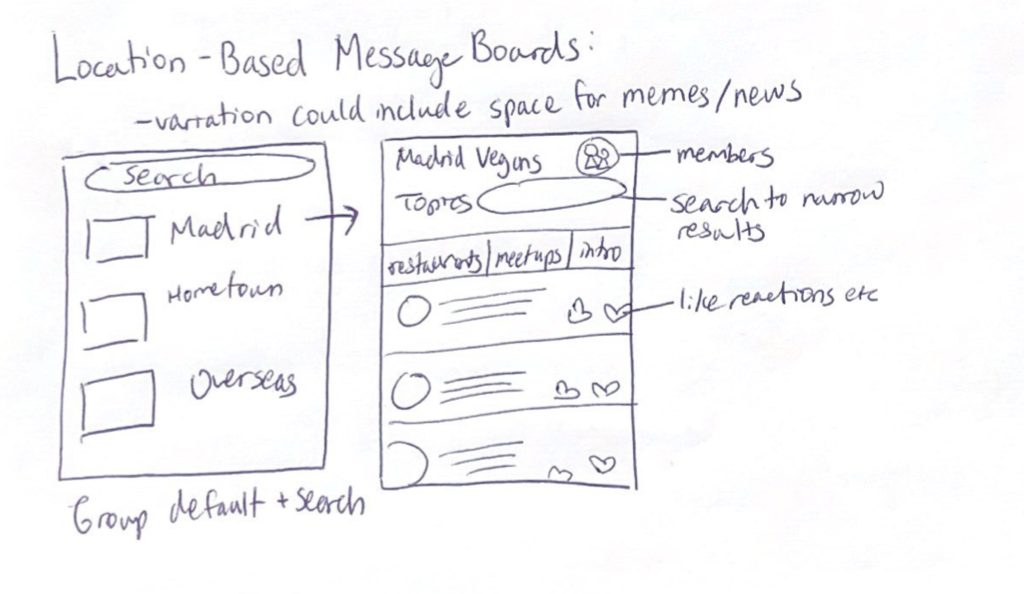 Location-Based Message Boards:
-variation could include space for memes/news
search
Madrid
Hometown
Overseas
Group default + search
Madrid Vegans
members
Topics
search to narrow
results
restaurants/meetups/intro
like reactions etc